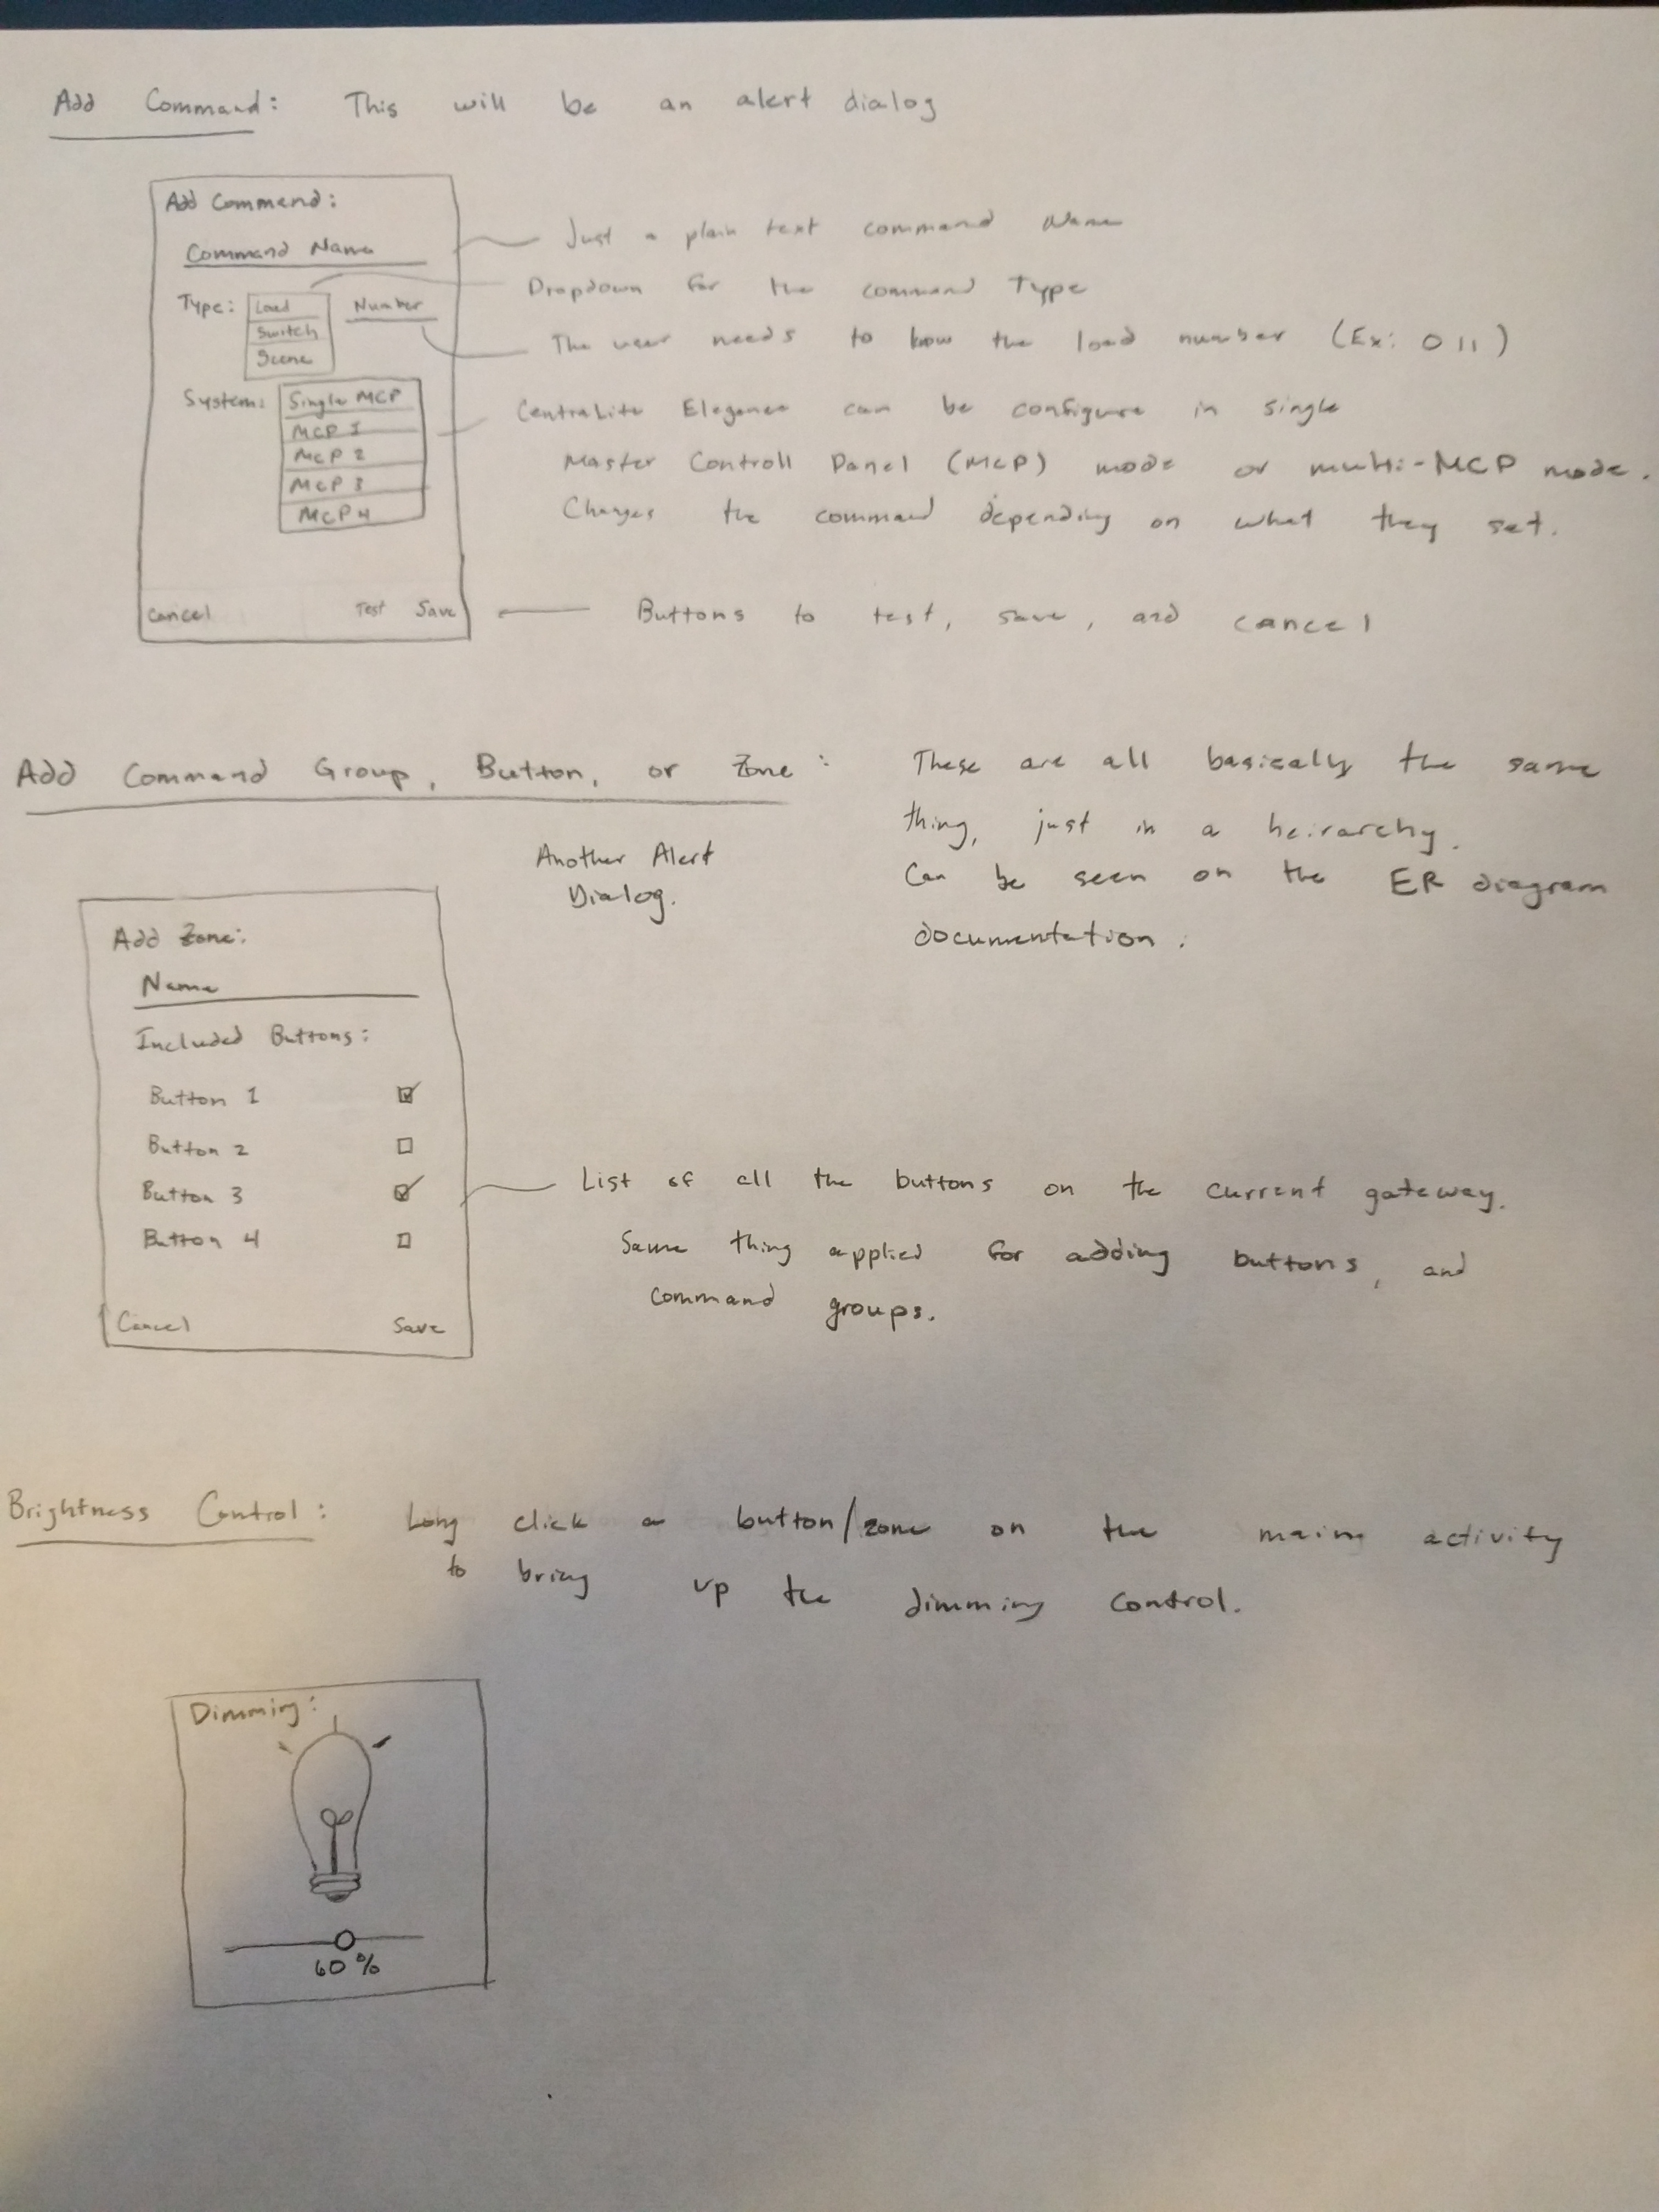 Add Command: This will be an alert dialog
Add Command:
Command Name
Just a plain text command Name
Type: Load
Number
Switch
Scene
Dropdown for the command Type
The user needs to know the load number (Ex: 011)
System: Single MCP
MCP 1
MCP 2
MCP 3
MCP 4
CentraLite Elegance can be configure in single
Master Controll Panel (MCP) mode or multi-MCP mode.
Changes the command depending on what they set.
Cancel Test Save
Buttons to test, save, and cancel
Add Command Group, Button, or Zone:
These are all basically the same
thing, just in a heirarchy.
Can be seen on the ER diagram
documentation.
Another Alert
Dialog.
Add Zone:
Name
Included Buttons:
Button 1
Button 2
Button 3
Button 4
Cancel Save
List of all the buttons on the current gateway.
Same thing applied for adding buttons, and
command groups.
Brightness Control: Long click a button/zone on the main activity
to bring up the dimming control.
Dimming:
60%